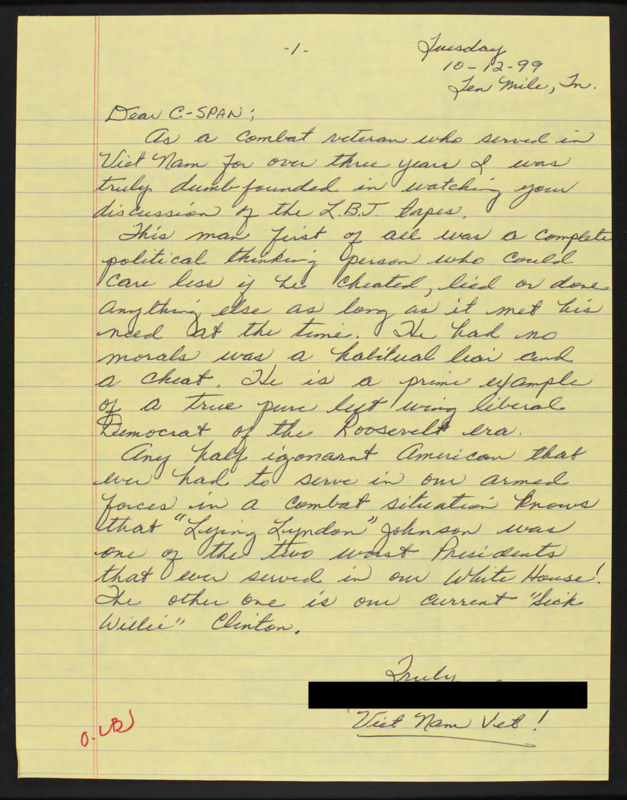 -1-
Tuesday
10-12-99
Ten Mile, Tn.
Dear C-SPAN;
As a combat veteran who served in
Viet Nam for over three years I was
truly dumb founded in watching your
discussion of the L.B.J. tapes.
This man first of all was a complete
political thinking person who could
care less if he cheated, lied or done
anything else as long as it met his
need at the time. He had no
morals was a habitual liar and
a cheat. He is a prime example
of a true pure left wing liberal
Democrat of the Roosevelt era.
Any half igonarnt American that
ever had to serve in our armed
forces in a combat situation knows
that "Lying Lyndon" Johnson was
one of the two worst Presidents
that ever served in our White House!
The other one is our current "Sick
Willie" Clinton.
Truly
Viet Nam Vet!